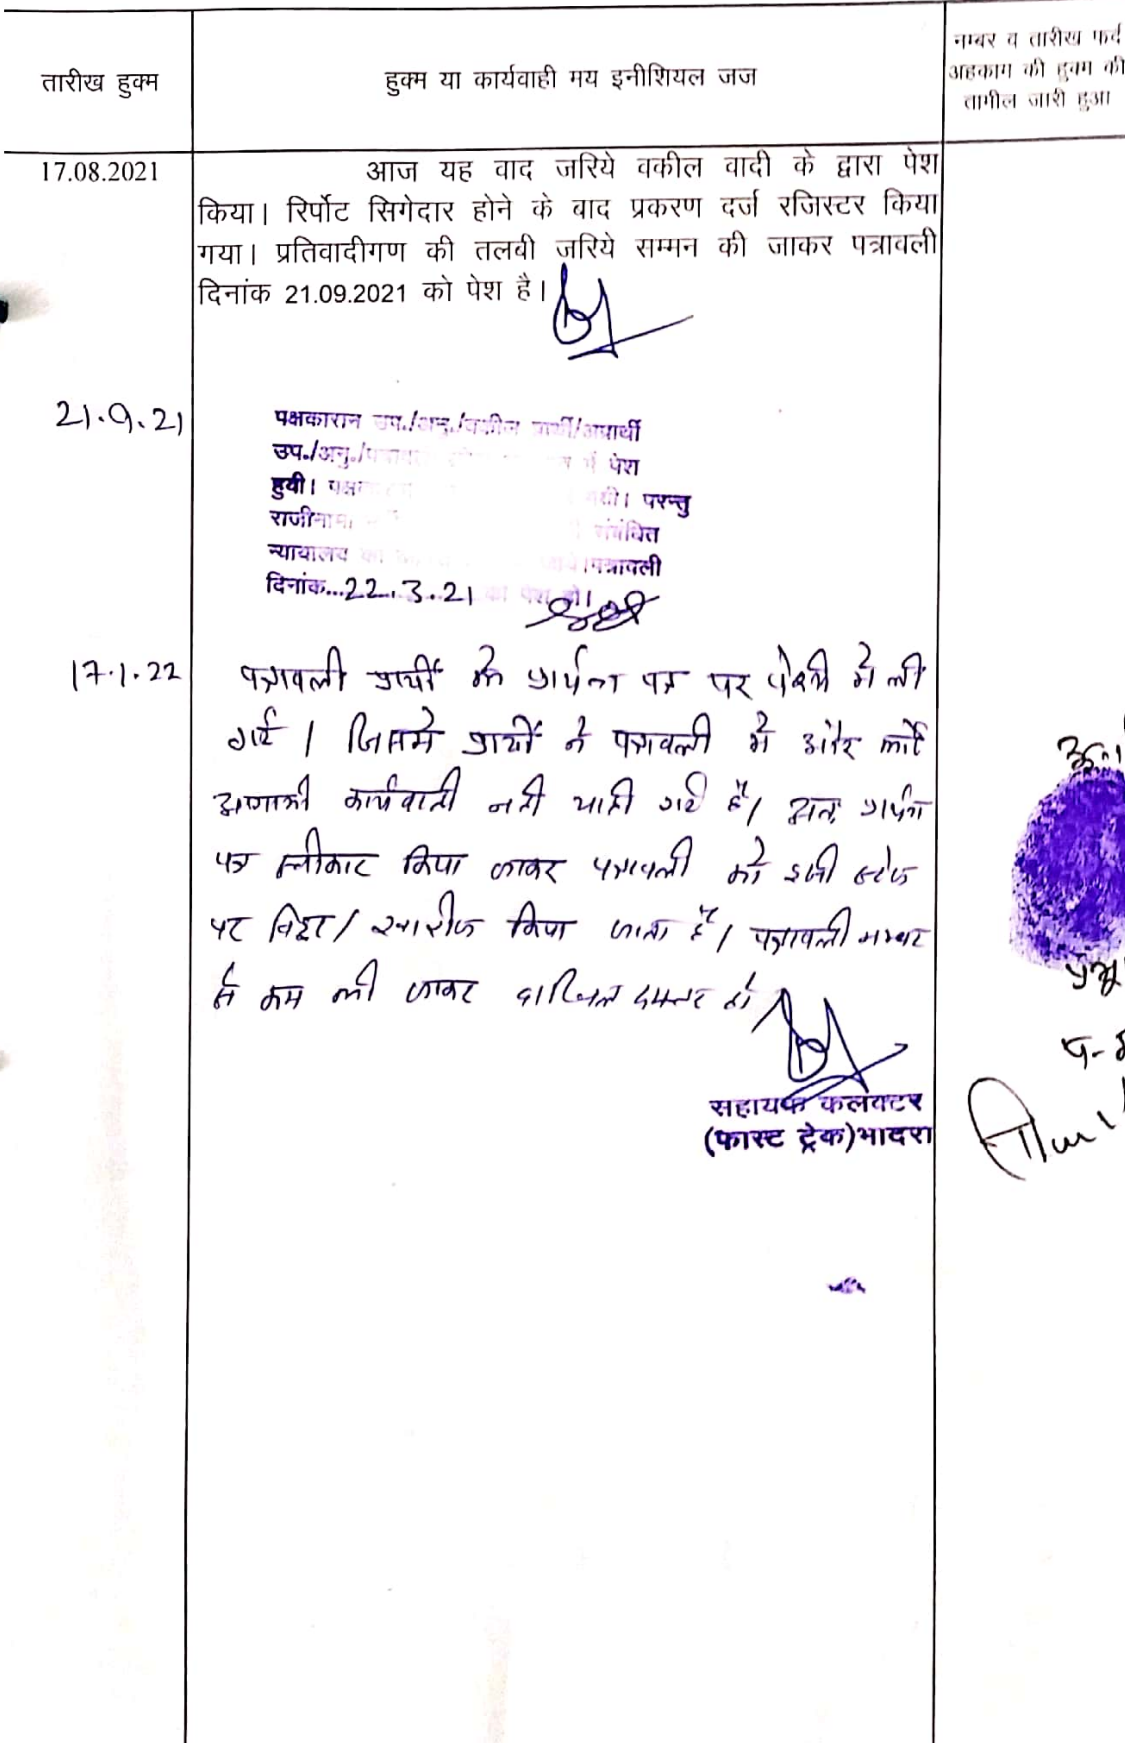 तारीख हुक्म
हुक्म या कार्यवाही मय इनीशियल जज
नम्बर व तारीख फर्द
अहकाम की हुक्म की
तामील जारी हुआ
17.08.2021
आज यह वाद जरिये वकील वादी के द्वारा पेश
किया। रिर्पोट सिगेदार होने के बाद प्रकरण दर्ज रजिस्टर किया
गया। प्रतिवादीगण की तलवी जरिये सम्मन की जाकर पत्रावली
दिनांक 21.09.2021 को पेश है।
21.9.21
पक्षकारान उप./अनु./वकील प्रार्थी/अप्रार्थी
उप./अनु./ में पेश
हुयी। परन्तु
राजीनामा संबंधित
न्यायालय ।पत्रावली
दिनांक...22.3.21 को पेश हो।
17.1.22
पत्रावली प्रार्थी के प्रार्थना पत्र पर पेशी मे ली
गई। जिसमे प्रार्थी ने पत्रावली मे और कोई
कार्यवाही नही चाही गई है। अतः प्रार्थना
पत्र स्वीकार किया जाकर पत्रावली को इसी स्टेज
पर / खारीज किया जाता है। पत्रावली नम्बर
से कम की जाकर दाखिल दफ्तर हो
सहायक कलक्टर
(फास्ट ट्रेक)भादरा